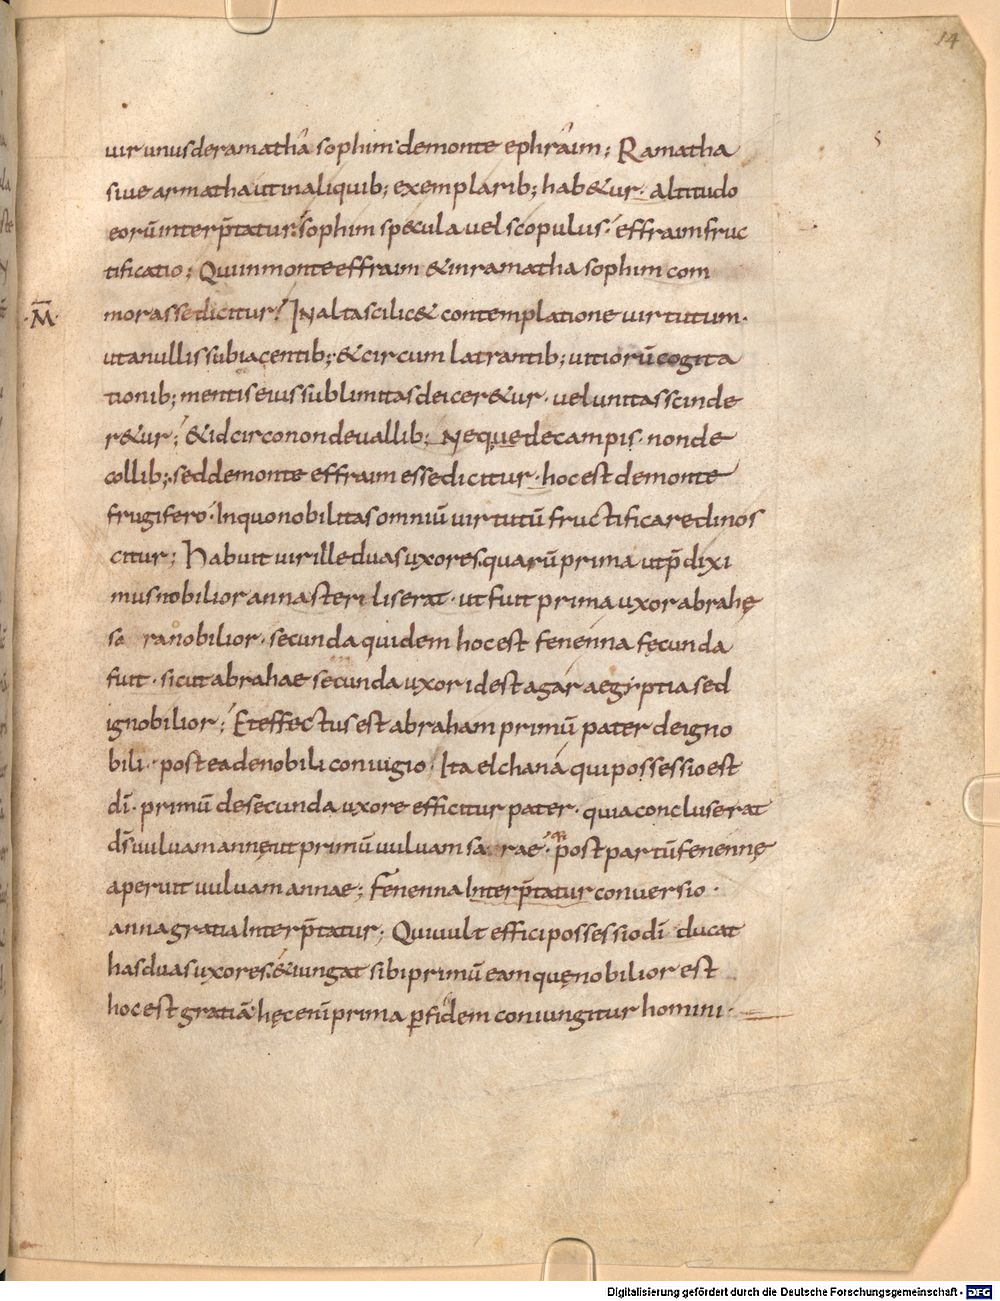 14
uir unus de ramatha sophim· de monte ephraim; Ramatha
siue armatha ut in aliquib; exemplarib; hab&ur· altitudo
eorū interp̄tatur· sophim specula uel scopulus· effraim fruc
tificatio; Qui in monte effraim & in ramatha sophim com
·M̄· morasse dicitur! In alta scilic& contemplatione uirtutum·
ut a nullis subiacentib; & circum latrantib; uitiorū cogita
tionib; mentis eius sublimitas deicer&ur· uel unitas scinde
r&ur; & idcirco non de uallib; Neque de campis· non de
collib; sed de monte effraim esse dicitur· hoc est de monte
frugifero· In quo nobilitas omniū uirtutū fructificare dinos
citur; Habuit uir ille duas uxores· quarū prima ut p̄dixi
mus nobilior anna steri liserat· ut fuit prima uxor abrahę
sa ra nobilior· secunda quidem hoc est fenenna fęcunda
fuit· sicut abrahae secunda uxor id est agar aegyptia sed
ignobilior; Et effectus est abraham primū pater de igno
bili· postea de nobili conuigio· Ita elchana qui possessio est
dī· primū de secunda uxore efficitur pater· quia concluserat
dn̄s uuluam annę ut primū uuluam sa rae· post partū fenennę
aperuit uuluam annae; Fenenna Interp̄tatur conuersio·
anna gratia Interp̄tatur; Qui uult effici possessio dī ducat
has duas uxores· & iungat sibi primū eam quę nobilior est
hoc est gratiā· hęc enī prima p̱ fidem coniungitur homini·
Digitalisierung gefördert durch die Deutsche Forschungsgemeinschaft - DFG